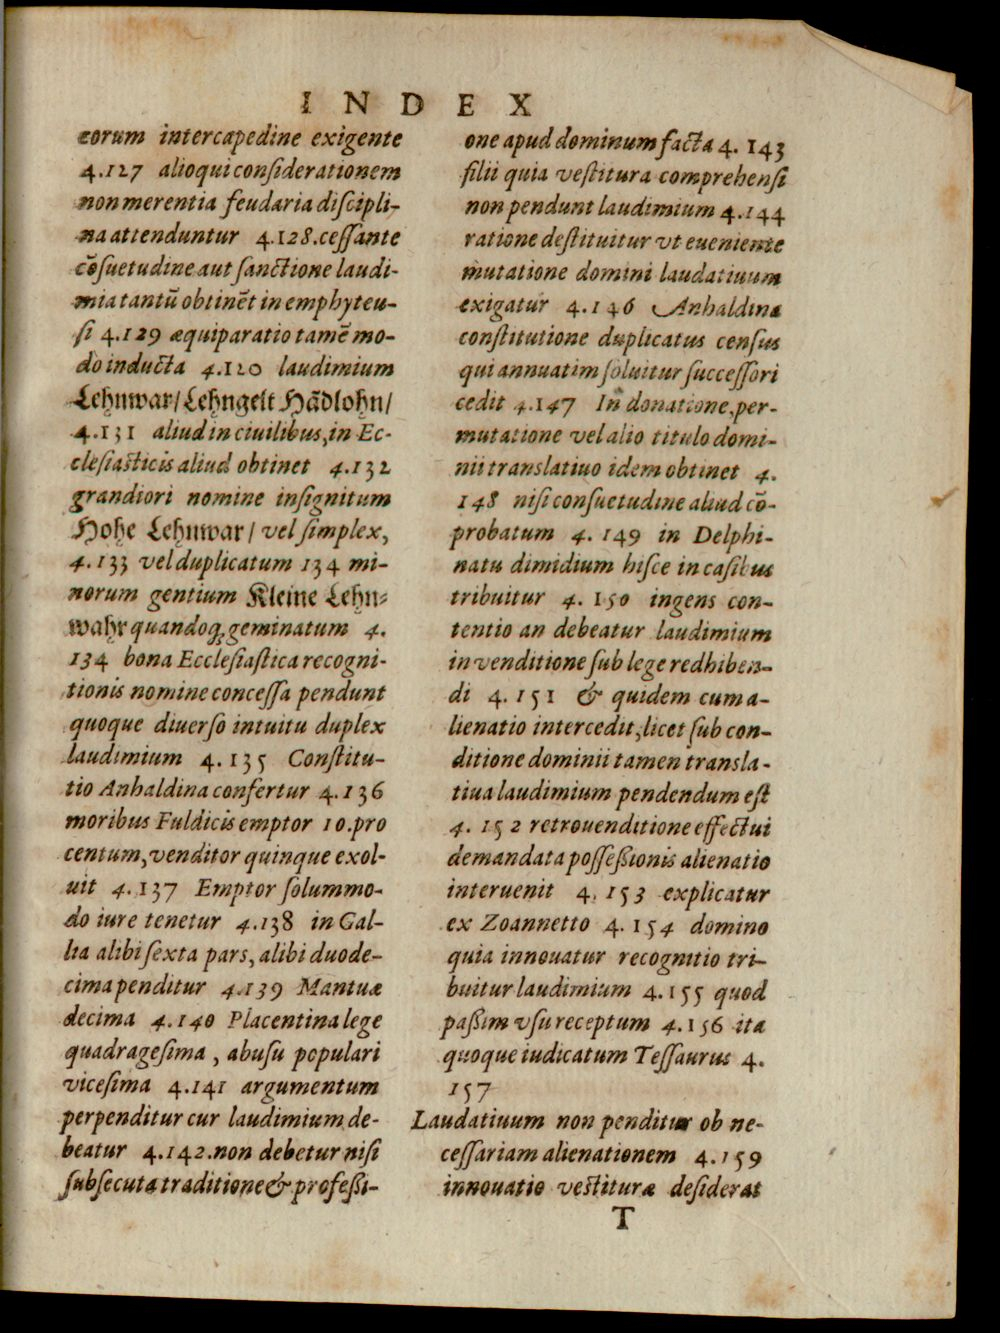 INDEX
eorum intercapedine exigente
4.127 alioqui considerationem
non merentia feudaria discipli-
na attenduntur 4.128. cessante
cōsuetudine aut sanctione laudi-
mia tantū obtinēt in emphyteu-
si 4.129 æquiparatio tamē mo-
do inducta 4.120 laudimium
Lehnwar/ Lehngelt Hādlohn/
4.131 aliud in ciuilibus, in Ec-
clesiasticis aliud obtinet 4.132
grandiori nomine insignitum
Hohe Lehnwar/ vel simplex,
4.133 vel duplicatum 134 mi-
norum gentium Kleine Lehn-
wahr quandoq; geminatum 4.
134 bona Ecclesiastica recogni-
tionis nomine concessa pendunt
quoque diuerso intuitu duplex
laudimium 4.135 Constitu-
tio Anhaldina confertur 4.136
moribus Fuldicis emptor 10. pro
centum, venditor quinque exol-
uit 4.137 Emptor solummo-
do iure tenetur 4.138 in Gal-
lia alibi sexta pars, alibi duode-
cima penditur 4.139 Mantuæ
decima 4.140 Placentina lege
quadragesima, abusu populari
vicesima 4.141 argumentum
perpenditur cur laudimium de-
beatur 4.142. non debetur nisi
subsecuta traditione & professi-
one apud dominum facta 4.143
filii quia vestitura comprehensi
non pendunt laudimium 4.144
ratione destituitur vt eueniente
mutatione domini laudatiuum
exigatur 4.146 Anhaldina
constitutione duplicatus census
qui annuatim soluitur successori
cedit 4.147 In donatione, per-
mutatione vel alio titulo domi-
nii translatiuo idem obtinet 4.
148 nisi consuetudine aliud cō-
probatum 4.149 in Delphi-
natu dimidium hisce in casibus
tribuitur 4.150 ingens con-
tentio an debeatur laudimium
in venditione sub lege redhiben-
di 4.151 & quidem cum a-
lienatio intercedit, licet sub con-
ditione dominii tamen transla-
tiua laudimium pendendum est
4.152 retrouenditione effectui
demandata possessionis alienatio
interuenit 4.153 explicatur
ex Zoannetto 4.154 domino
quia innouatur recognitio tri-
buitur laudimium 4.155 quod
passim vsu receptum 4.156 ita
quoque iudicatum Tessaurus 4.
157
Laudatiuum non penditur ob ne-
cessariam alienationem 4.159
innouatio vestituræ desiderat
T